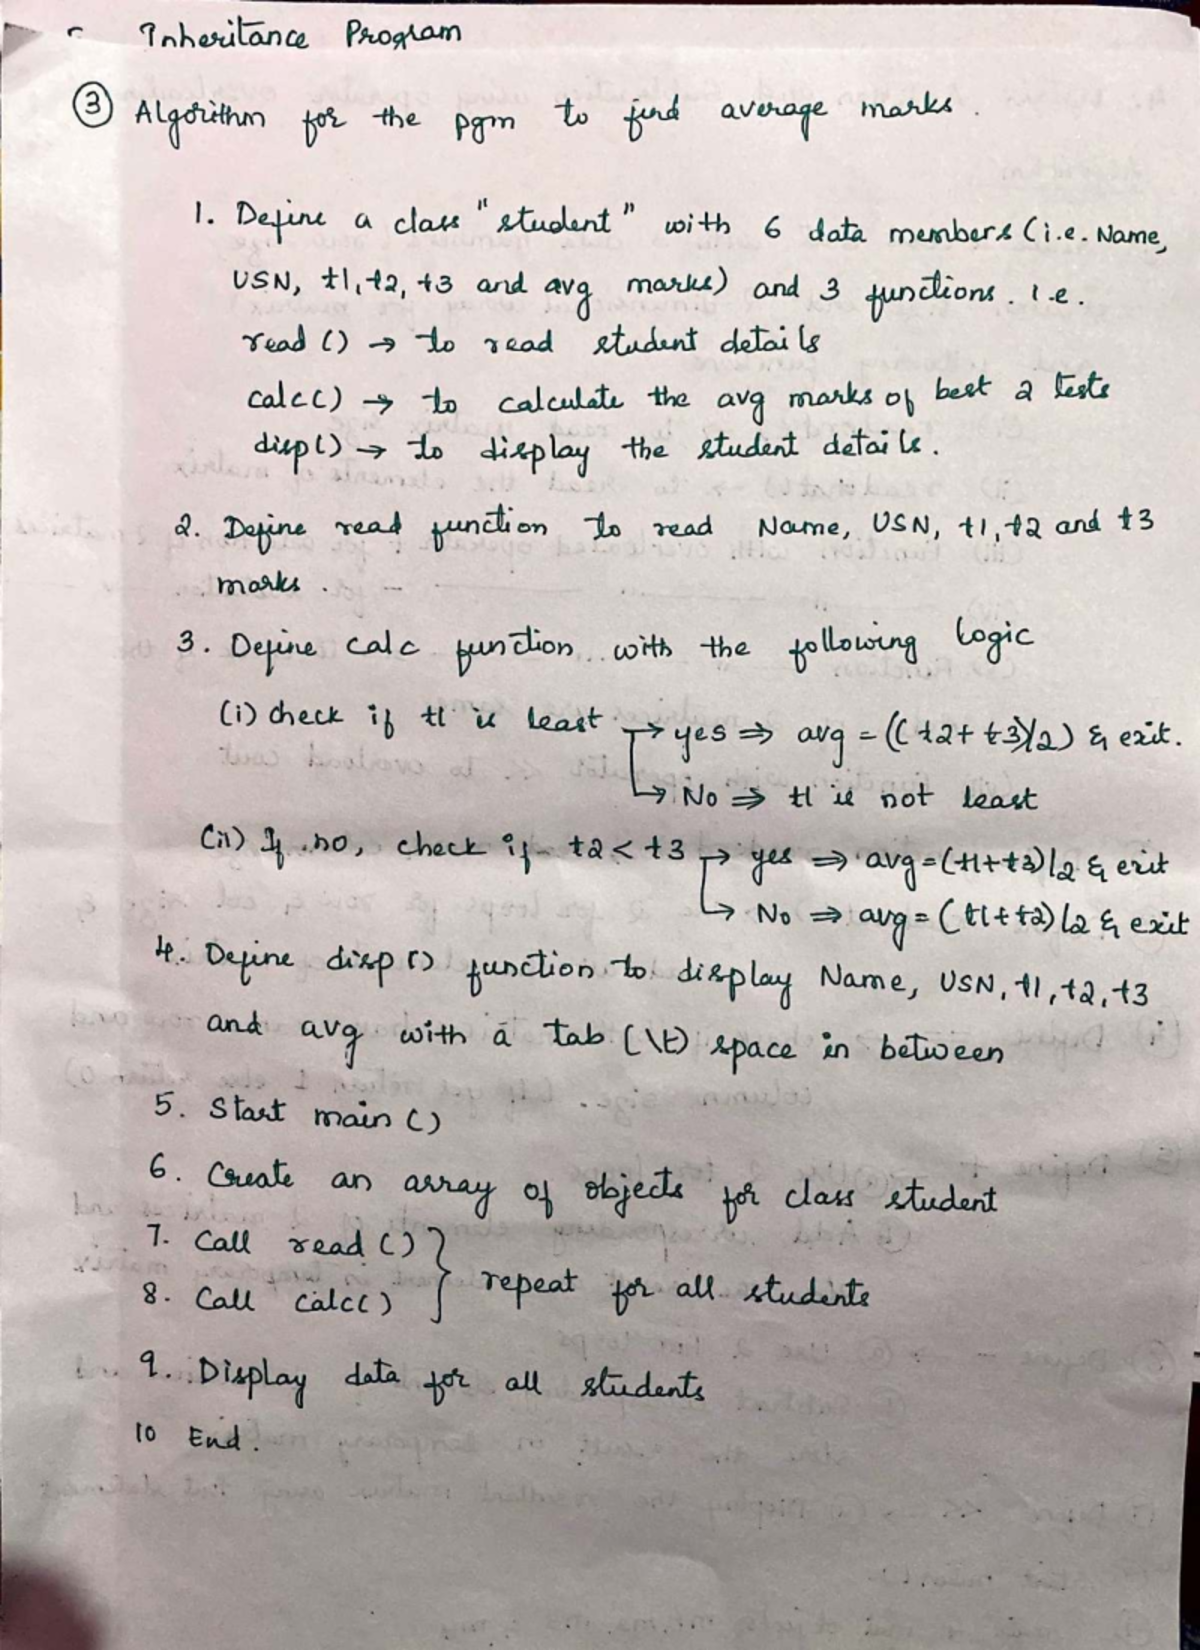 Inheritance Program
③ Algorithm for the pgm to find average marks.
1. Define a class "student" with 6 data members (i.e. Name,
USN, t1, t2, t3 and avg marks) and 3 functions. i.e.
read () → to read student details
calc() → to calculate the avg marks of best 2 tests
disp() → to display the student details.
2. Define read function to read Name, USN, t1, t2 and t3
marks.
3. Define calc function with the following logic
(i) check if t1 is least → yes ⇒ avg = ((t2+t3)/2) & exit.
↳ No ⇒ t1 is not least
(ii) If no, check if t2 < t3 → yes ⇒ avg = (t1+t3)/2 & exit
↳ No ⇒ avg = (t1+t2)/2 & exit
4. Define disp() function to display Name, USN, t1, t2, t3
and avg with a tab (\t) space in between
5. Start main ()
6. Create an array of objects for class student
7. Call read () }
8. Call calc() } repeat for all students
9. Display data for all students
10 End.